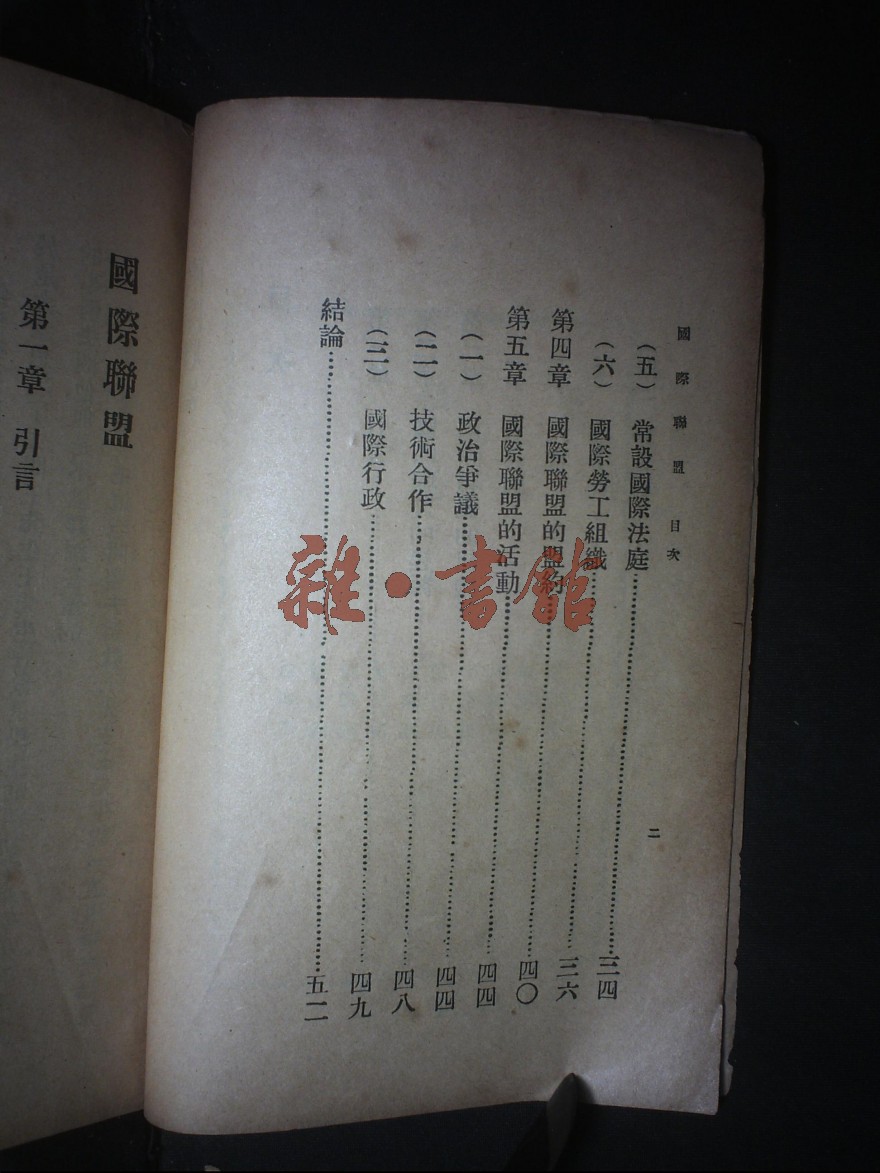 國際聯盟 目次 二
（五） 常設國際法庭…………三四
（六） 國際勞工組織…………三六
第四章 國際聯盟的盟約…………四〇
第五章 國際聯盟的活動…………四四
（一） 政治爭議…………四四
（二） 技術合作…………四八
（三） 國際行政…………四九
結論…………五二
國際聯盟
第一章 引言
雜·書館